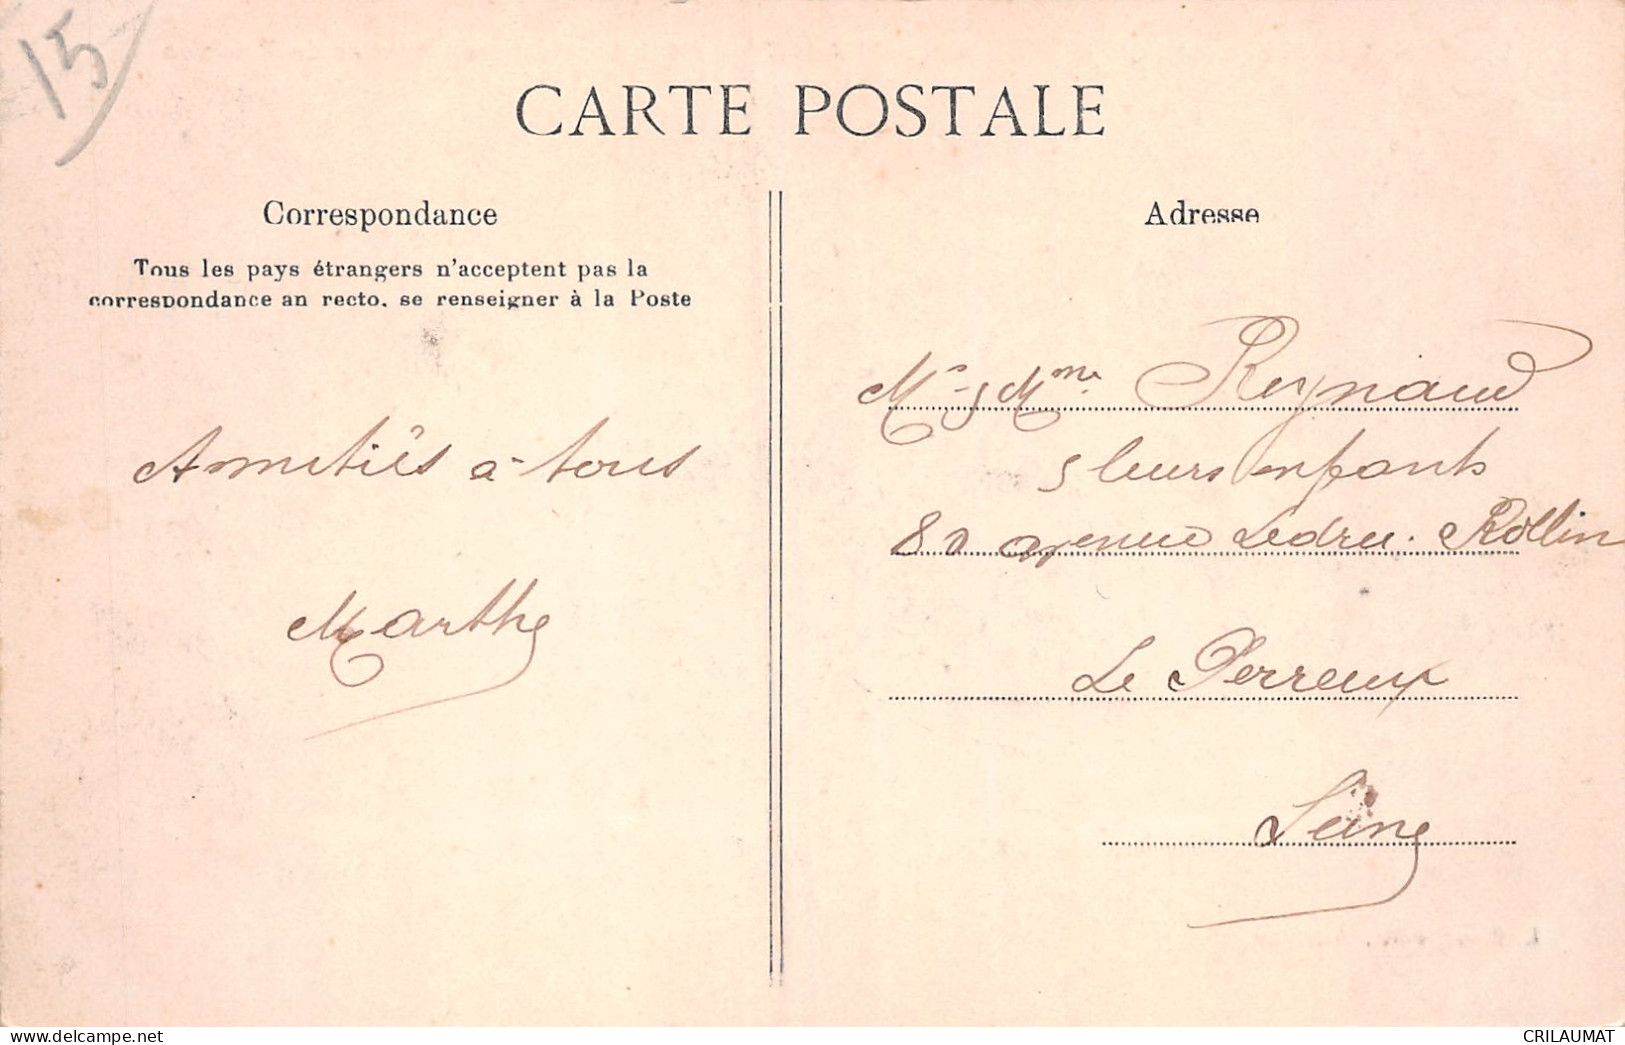 15
CARTE POSTALE
Correspondance
Tous les pays étrangers n'acceptent pas la
correspondance au recto, se renseigner à la Poste
Amitiés à tous
Marthe
Adresse
Mr & Mme Reynaud
& leurs enfants
80 avenue Ledru-Rollin
Le Perreux
Seine
www.delcampe.net
CRILAUMAT